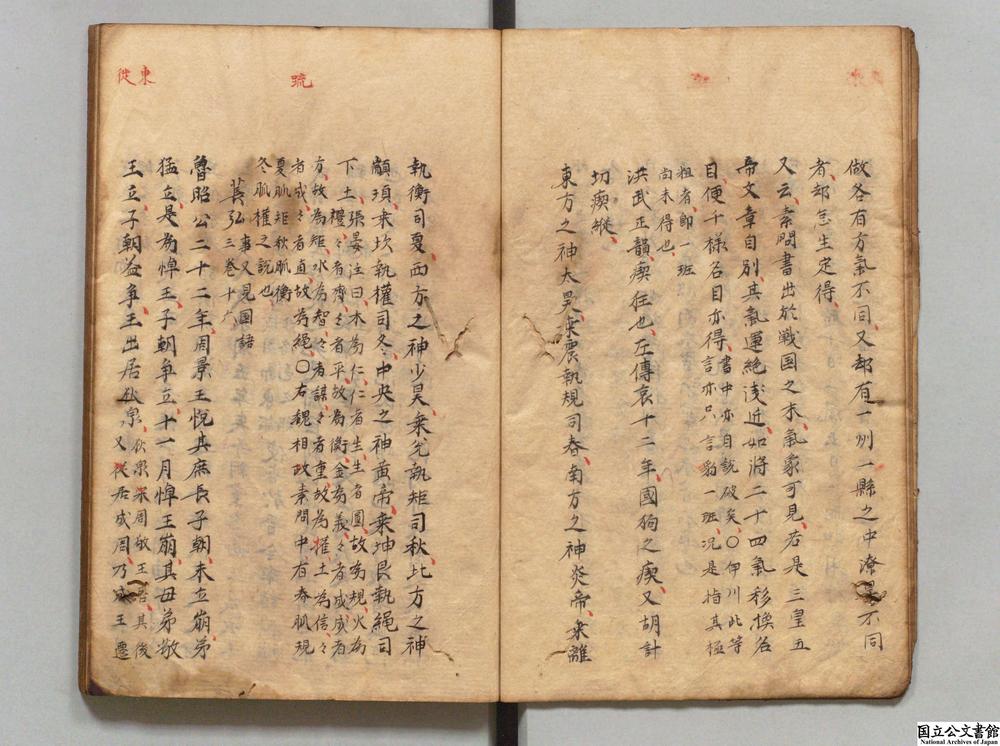 做各有方氣不同又却有一州一縣之中潦旱不同
者却怎生定得
又云素問書出於戦国之末氣象可見若是三皇五
帝文章自別其氣運絶浅近如將二十四氣移換名
目便千様名目亦得書中亦自説破矣〇伊川此等
言亦只言豹一班况是指其極
粗者即一班
尚未得也
洪武正韻瘈狂也左傳哀十二年國狗之瘈又胡計
切瘈瘲
東方之神太昊乗震執規司春南方之神炎帝乗離
疏
執衡司夏西方之神少昊乗兌執矩司秋北方之神
顓頊乗坎執權司冬中央之神黄帝乗坤艮執繩司
下土張晏注曰木為仁仁者生生者圓故為規火為
禮々者齊々者平故為衡金為義々者成成者
方故為矩水為智々者謀々者重故為權土為信々
者成々者直故為繩〇右魏相政素問中有春脈規
夏脈矩秋脈衡
冬脈權之説也
萇弘三巻十六
事又見国語
魯昭公二十二年周景王悦其庶長子朝未立崩弟
猛立是為悼王子朝争立十一月悼王崩其母弟敬
王立子朝益争王出居狄泉
又從居成周乃成王遷
東從
国立公文書館
National Archives of Japan